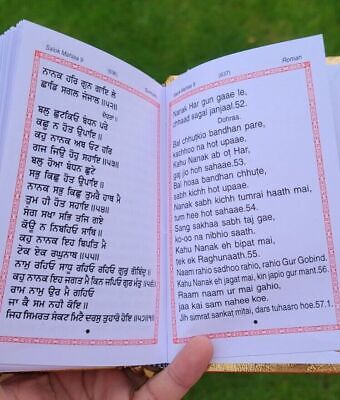 Salok Mehlaa 9
(636)
ਨਾਨਕ ਹਰਿ ਗੁਨ ਗਾਇ ਲੇ
ਛਾਡਿ ਸਗਲ ਜੰਜਾਲ ॥੫੨॥
ਦੋਹਰਾ ॥
ਬਲੁ ਛੁਟਕਿਓ ਬੰਧਨ ਪਰੇ
ਕਛੂ ਨ ਹੋਤ ਉਪਾਇ ॥
ਕਹੁ ਨਾਨਕ ਅਬ ਓਟ ਹਰਿ
ਗਜ ਜਿਉ ਹੋਹੁ ਸਹਾਇ ॥੫੩॥
ਬਲੁ ਹੋਆ ਬੰਧਨ ਛੁਟੇ
ਸਭੁ ਕਿਛੁ ਹੋਤ ਉਪਾਇ ॥
ਨਾਨਕ ਸਭੁ ਕਿਛੁ ਤੁਮਰੈ ਹਾਥ ਮੈ
ਤੁਮ ਹੀ ਹੋਤ ਸਹਾਇ ॥੫੪॥
ਸੰਗ ਸਖਾ ਸਭਿ ਤਜਿ ਗਏ
ਕੋਊ ਨ ਨਿਬਹਿਓ ਸਾਥਿ ॥
ਕਹੁ ਨਾਨਕ ਇਹ ਬਿਪਤਿ ਮੈ
ਟੇਕ ਏਕ ਰਘੁਨਾਥ ॥੫੫॥
ਨਾਮੁ ਰਹਿਓ ਸਾਧੂ ਰਹਿਓ ਰਹਿਓ ਗੁਰੁ ਗੋਬਿੰਦੁ ॥
ਕਹੁ ਨਾਨਕ ਇਹ ਜਗਤ ਮੈ ਕਿਨ ਜਪਿਓ ਗੁਰ ਮੰਤੁ ॥੫੬॥
ਰਾਮ ਨਾਮੁ ਉਰ ਮੈ ਗਹਿਓ
ਜਾ ਕੈ ਸਮ ਨਹੀ ਕੋਇ ॥
ਜਿਹ ਸਿਮਰਤ ਸੰਕਟ ਮਿਟੈ ਦਰਸੁ ਤੁਹਾਰੋ ਹੋਇ ॥੫੭॥੧॥
Salok Mehlaa 9
(637)
Roman
Nanak Har gun gaae le,
chhaad sagal janjaal.52.
Dohraa.
Bal chhutkio bandhan pare,
kachhoo na hot upaae.
Kahu Nanak ab ot Har,
gaj jio hoh sahaae.53.
Bal hoaa bandhan chhute,
sabh kichh hot upaae.
Nanak sabh kichh tumrai haath mai,
tum hee hot sahaae.54.
Sang sakhaa sabh taj gae,
ko-oo na nibhio saath.
Kahu Nanak eh bipat mai,
tek ek Raghunaath.55.
Naam rahio sadhoo rahio, rahio Gur Gobind.
Kahu Nanak eh jagat mai, kin japio gur mant.56.
Raam naam ur mai gahio,
jaa kai sam nahee koe.
Jih simrat sankat mitai, dars tuhaaro hoe.57.1.